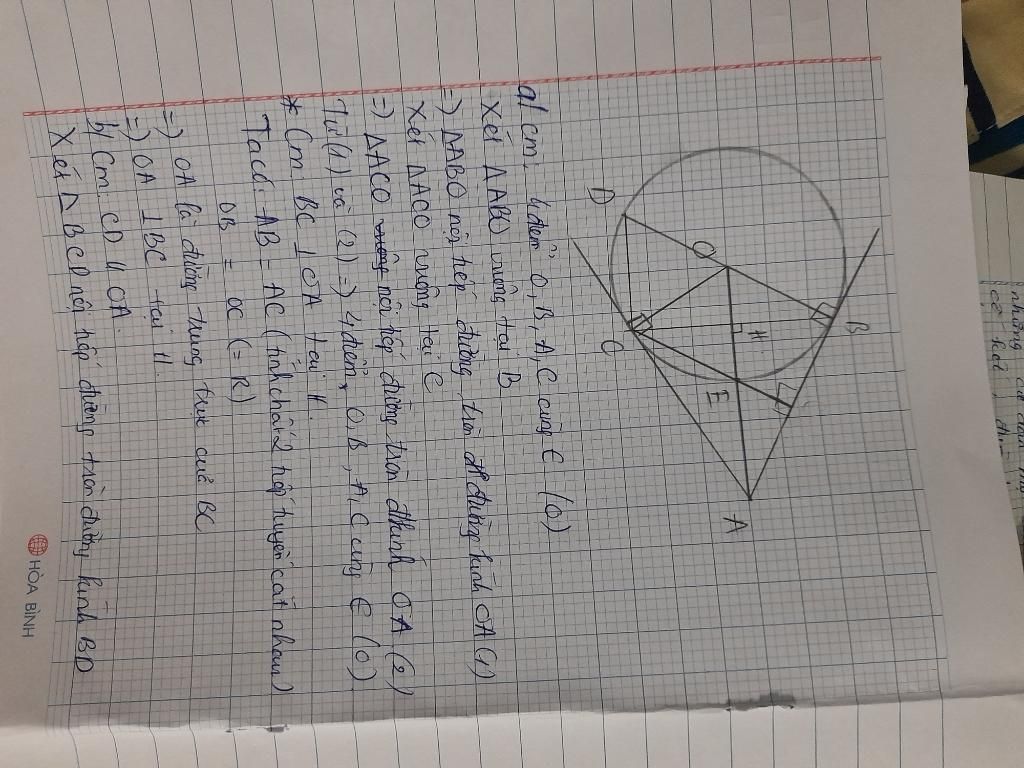 D
O
B
H
C
E
A
a/ Cm: 4 điểm O, B, A, C cùng ∈ (O)
Xét △ABO vuông tại B
=) △ABO nội tiếp đường tròn đ đường kính OA (1)
Xét △ACO vuông tại C
=) △ACO vuông nội tiếp đường tròn đkính OA (2)
Từ (1) và (2) =) 4 điểm O, B, A, C cùng ∈ (O)
* Cm: BC ⊥ OA tại H.
Ta có: AB = AC (tính chất 2 tiếp tuyến cắt nhau)
OB = OC (= R)
=) OA là đường trung trực của BC
=) OA ⊥ BC tại H.
b/ Cm: CD // OA.
Xét △ BCD nội tiếp đường tròn đường kính BD
HÒA BÌNH
những